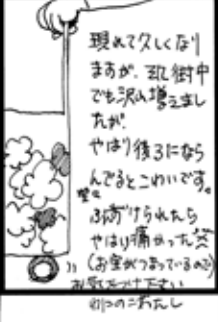 現れて久しくなり
ますが、最近街中
でも沢山増えまし
たが、
やはり後ろになら
んでるとこわいです。
ぶつけられたら
やはり痛かった笑
(お宝がつまっているので)
お気をつけ下さい